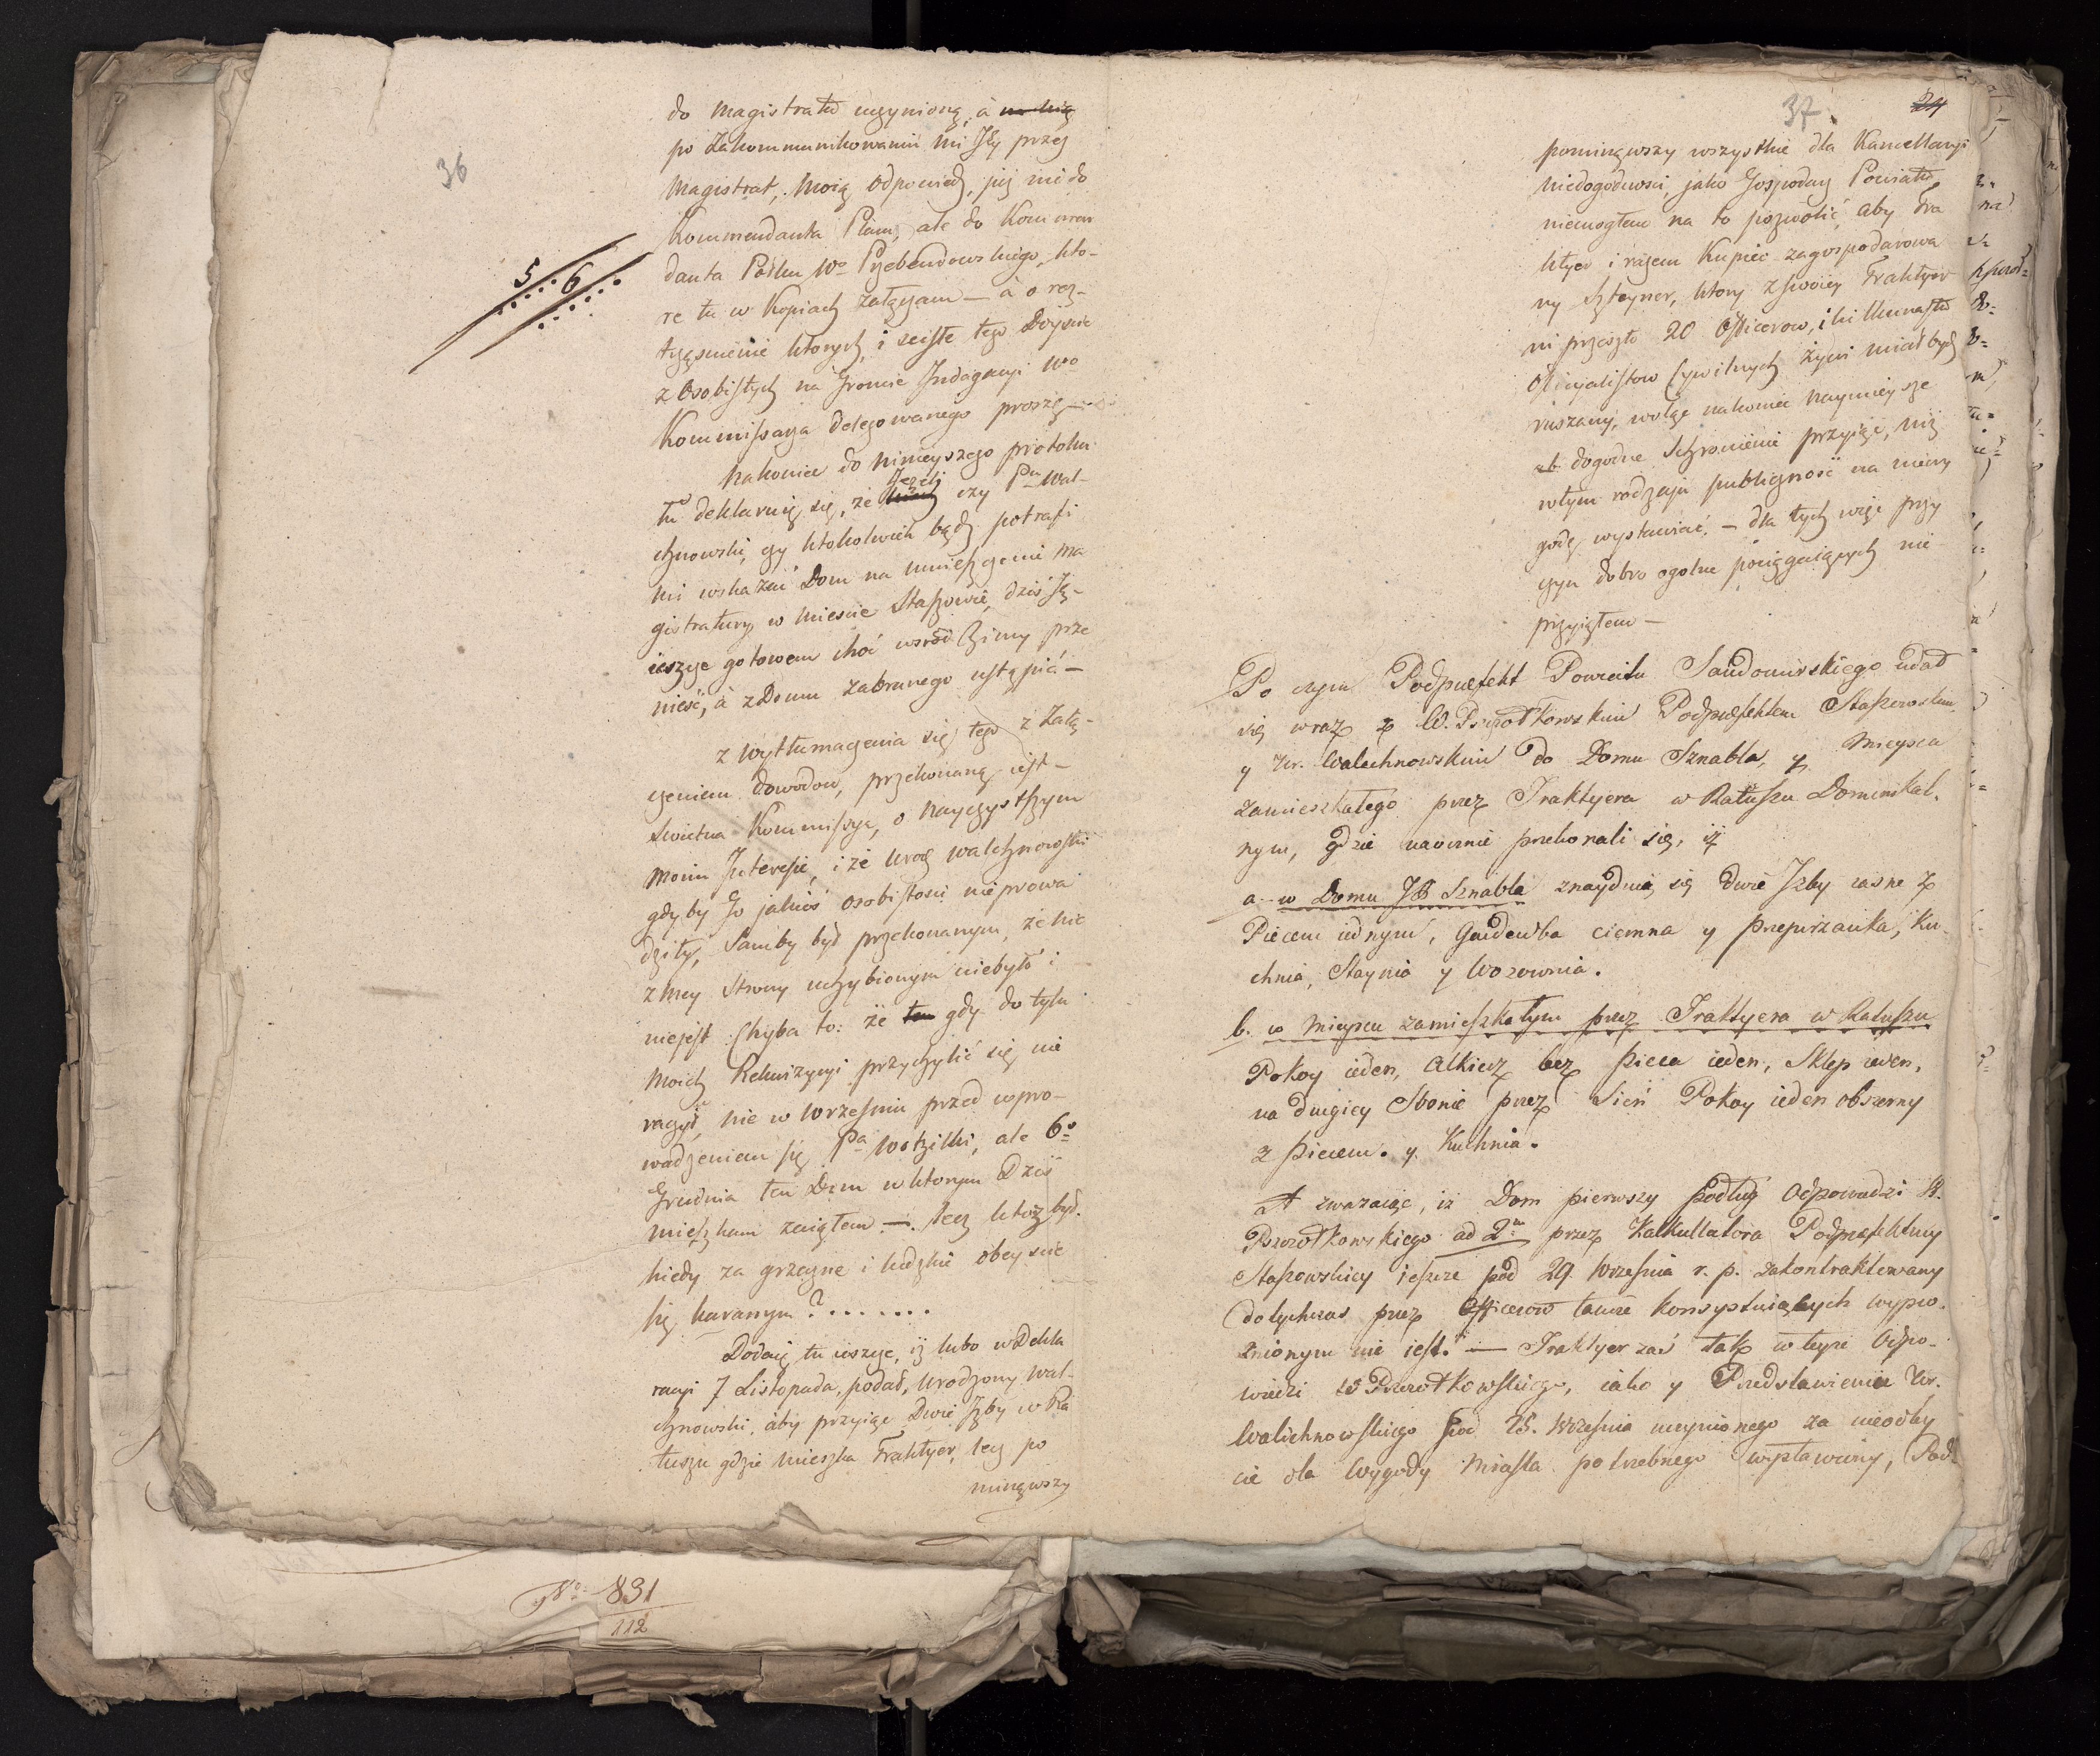 36
do Magistratu uczynioną, à na nię
po Zakommunikowaniu mi Jży przez
Magistrat, Moią Odpowiedz, już nie do
Kommendanta Placu, ale do Kommen
danta Półku Wo Przebendowskiego, kto-
re tu w Kopiach załączam — à o roz-
trząśnienie ktorych, i sciste tego Doyscie
z Osobistych na Groncie Indagacyi Wo
Kommissarza delegowanego proszę —
5 6
Nakoniec do Ninieyszego protokułu
tu deklaruię się, że Jeżeli czy Pan Wal-
chnowski, czy ktokolwiek bądz potrafi
mi wskazać Dom na umieszczenie Ma
gistratury w Miescie Staszowie, dziś Je-
szcze gotowem choć wsród Zimy prze
nieść, à z Domu zabranego ustąpić —
z Wytłumaczenia się tego z Załą-
czeniem dowodow, przekonaną iest —
Swietna Kommissya, o Nayczystszym
Moim Interesie, i że Uroz Walchnowski
gdyby Go jakieś osobistosci nieprowa
dziły, Samby był przekonanym, że nic
z Mey Strony uchybionym niebyło i
niejest. Chyba to: że ten gdy do tylu
Moich Rekwizycyi przychylić się nie
raczył, nie w Wrzesniu przed wpro-
wadzeniem się Pa Wodzilki, ale 6o
Grudnia ten Dom w ktorym Dziś
Mieszkam zaiąłem —. lecz ktoż był
kiedy za grzeczne i ludzkie obeyscie
się karanym? .......
Dodaię tu ieszcze, iż lubo w Dekla
racyi 7 Listopada, podał, Urodzony Wal-
chnowski, aby przyiąc Dwie Izby w Ra
tuszu gdzie mieszka Traktyer, lecz po
minąwszy
No 831
112
37
24
pominąwszy wszystkie dla Kancellaryi
niedogodnosci, jako Gospodarz Powiatu,
niemogłem na to pozwolić, aby Tra
ktyer i razem Kupiec zagospodarowa
ny Szteyner, ktory z swoiey Traktyer
ni przeszło 20 Officerow, i kilkunastu
Officyalistow Cywilnych żywi miał bydz
ruszany, wolząc nakoniec Naymniey sze
dogodne Schronienie przyiąc, niż
w tym rodzaju publiczność na niewy
godę wystawiać. — dla tych więc przy
czyn dobro ogolne pociągaiących nie
przyiąłem —
Po czym Podprefekt Powiatu Sandomirskiego udał
się wraz z W. Pszczołkowskim Podprefektem Staszowskim
y Ur. Walichnowskim do Domu Sznabla, y Mieysca
zamieszkałego przez Traktyera w Ratuszu Dominikal-
nym, gdzie naocznie przekonali się, iż
a. w Domu JP Sznabla znayduią się dwie Izby iasne z
Piecem iednym, Garderoba ciemna y przepirzanka, Ku-
chnia, Staynia y Wozownia.
b. w Mieyscu zamieszkałym przez Traktyera w Ratuszu
Pokoy ieden, Alkierz bez pieca ieden, Sklep ieden,
na drugiey Stronie przez Sień Pokoy ieden obszerny
z piecem. y Kuchnia.
A zwazaiąc, iż Dom pierwszy podług Odpowiedzi W.
Pszczołkowskiego ad 2m przez Kalkullatora Podprefektury
Staszowskiey ieszcze pod 29 Września r. p. zakontraktowany
dotychczas przez Officerow tamże konsystuiących wypro-
żnionym nie iest. — Traktyer zaś tak w teyże Odpo-
wiedzi W Pszczołkowskiego, iako y Przedstawieniu Ur.
Walichnowskiego pod 25. Września uczynionego za nieodby
cie dla Wygody Miasta potrzebnego wystawiony, Pod-